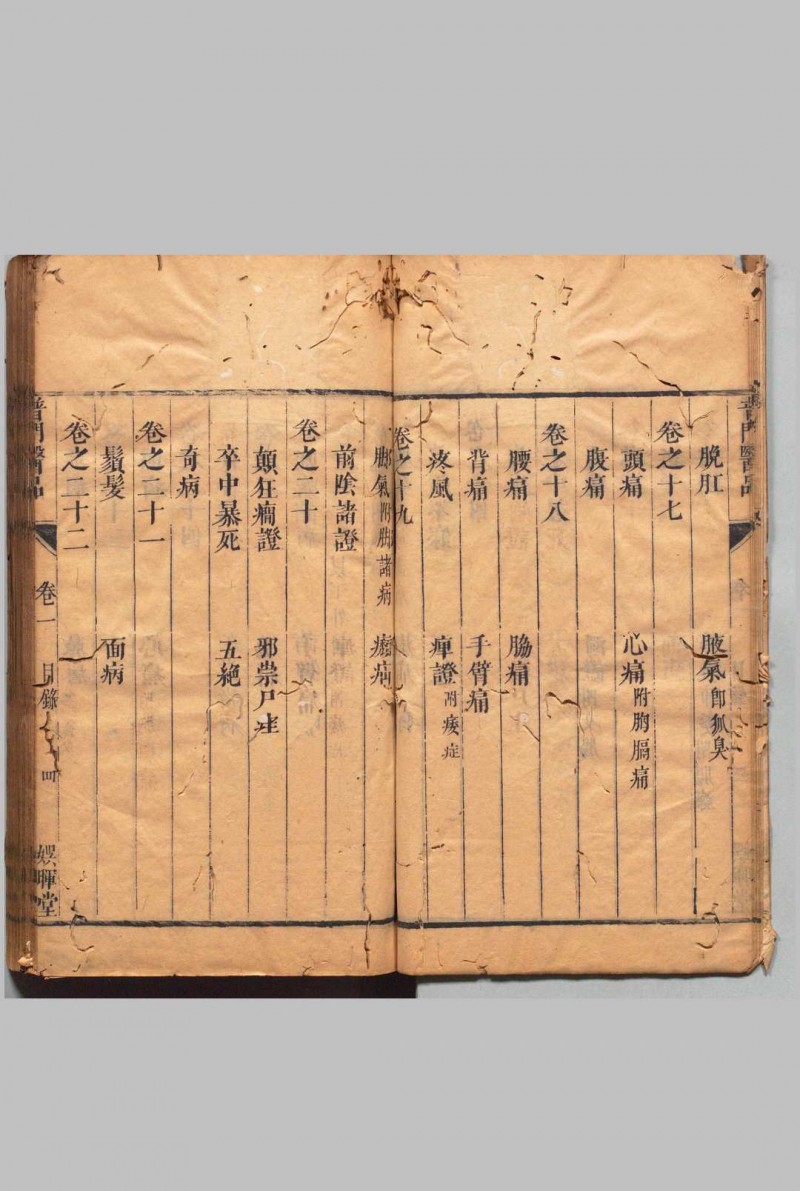 脫肛　腋氣即狐臭
卷之十七
頭痛　心痛附胸膈痛
腹痛
卷之十八
腰痛　脇痛
背痛　手臂痛
疼風　痺證附痿症
卷之十九
腳氣附腳諸病　㿗疝
前陰諸證
卷之二十
顛狂癇證　邪祟尸疰
卒中暴死　五絕
奇病
卷之二十一
鬚髮　面病
卷之二十二
普門醫品　卷一　目錄　四　娛暉堂